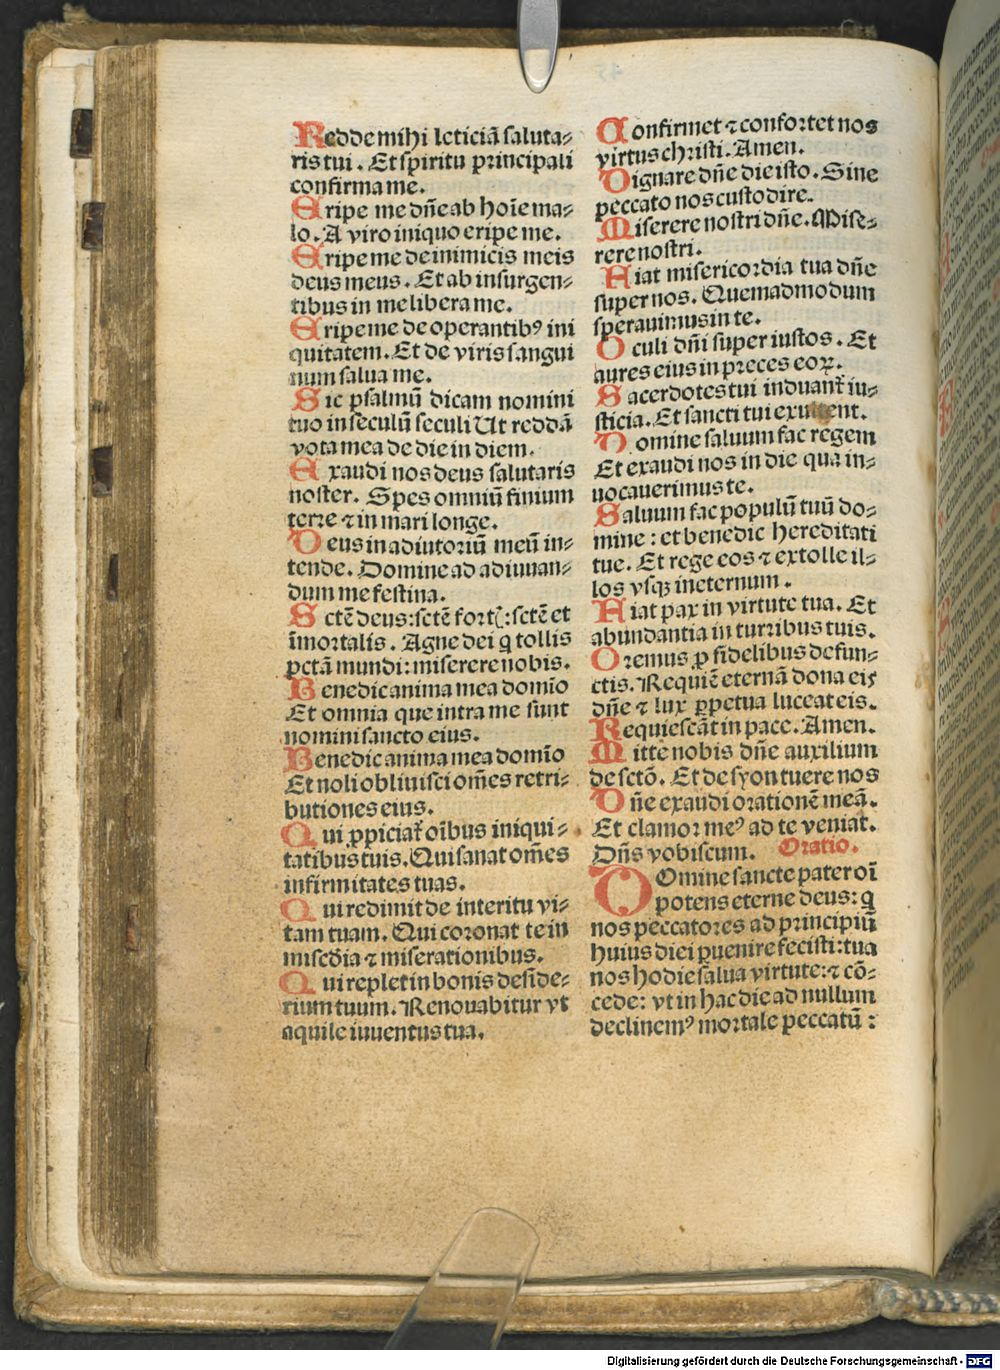 Redde mihi leticiã saluta-
ris tui. Et spiritu principali
confirma me.
Eripe me dñe ab hoĩe ma-
lo. A viro iniquo eripe me.
Eripe me de inimicis meis
deus meus. Et ab insurgen-
tibus in me libera me.
Eripe me de operantibꝰ ini
quitatem. Et de viris sangui
num salua me.
Sic psalmũ dicam nomini
tuo in seculũ seculi Ut reddã
vota mea de die in diem.
Exaudi nos deus salutaris
noster. Spes omniũ finium
terre ⁊ in mari longe.
Deus in adiutoriũ meũ in-
tende. Domine ad adiuuan-
dum me festina.
Sctẽ deus: sctẽ fort(: sctẽ et
ĩmortalis. Agne dei q̃ tollis
pctã mundi: miserere nobis.
Benedic anima mea domĩo
Et omnia que intra me sunt
nomini sancto eius.
Benedic anima mea domĩo
Et noli obliuisci om̃es retri-
butiones eius.
Qui ꝓpiciat̃ oĩbus iniqui-
tatibus tuis. Qui sanat om̃es
infirmitates tuas.
Qui redimit de interitu vi-
tam tuam. Qui coronat te in
misc̃dia ⁊ miserationibus.
Qui replet in bonis deside-
rium tuum. Renouabitur vt
aquile iuuentus tua.
Confirmet ⁊ confortet nos
virtus christi. Amen.
Dignare dñe die isto. Sine
peccato nos custodire.
Miserere nostri dñe. Mise-
rere nostri.
Fiat misericordia tua dñe
super nos. Quemadmodum
sperauimus in te.
Oculi dñi super iustos. Et
aures eius in preces eoꝝ.
Sacerdotes tui induant̃ iu-
sticia. Et sancti tui exultent.
Domine saluum fac regem
Et exaudi nos in die qua in-
uocauerimus te.
Saluum fac populũ tuũ do-
mine: et benedic hereditati
tue. Et rege eos ⁊ extolle il-
los vsqꝫ ineternum.
Fiat pax in virtute tua. Et
abundantia in turribus tuis.
Oremus ꝓ fidelibus defun-
ctis. Requiẽ eternã dona eis
dñe ⁊ lux ꝑpetua luceat eis.
Requiescãt in pace. Amen.
Mitte nobis dñe auxilium
de sctõ. Et de syon tuere nos
Dñe exaudi orationẽ meã.
Et clamor meꝰ ad te veniat.
Dñs vobiscum. Oratio.
Domine sancte pater oĩ
potens eterne deus: q̃
nos peccatores ad principiũ
huius diei ꝑuenire fecisti: tua
nos hodie salua virtute: ⁊ cõ-
cede: vt in hac die ad nullum
declinemꝰ mortale peccatũ:
Digitalisierung gefördert durch die Deutsche Forschungsgemeinschaft - DFG